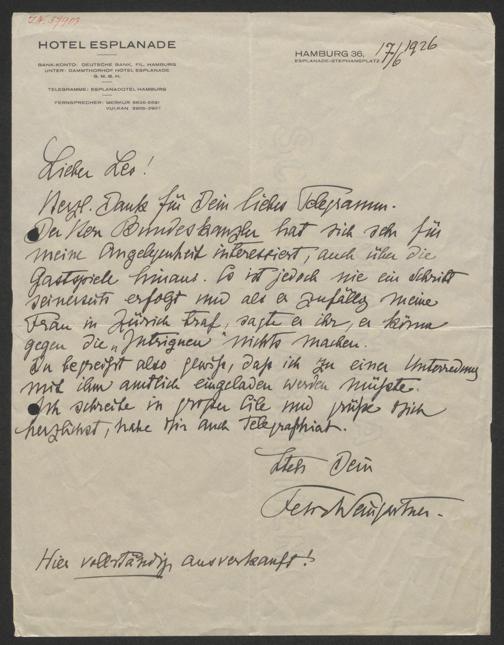 I.N. 57903
HOTEL ESPLANADE
BANK-KONTO: DEUTSCHE BANK, FIL. HAMBURG
UNTER: DAMMTHORHOF HOTEL ESPLANADE
G. M. B. H.
TELEGRAMME: ESPLANADOTEL HAMBURG
FERNSPRECHER: MERKUR
VULKAN
HAMBURG 36, 17/6 1926
ESPLANADE-STEPHANSPLATZ
Lieber Leo!
Herzl. Dank für Dein liebes Telegramm.
Der Herr Bundeskanzler hat sich sehr für
meine Angelegenheit interessiert, auch über die
Gastspiele hinaus. Es ist jedoch nie ein Schritt
seinerseits erfolgt und als er zufällig meine
Frau in Zürich traf, sagte er ihr, er könne
gegen die „Intriguen" nichts machen.
Du begreifst also gewiß, daß ich zu einer Unterredung
mit ihm amtlich eingeladen werden müßte.
Ich schreibe in großer Eile und grüße Dich
herzlichst, habe Dir auch telegraphiert.
Stets Dein
Felix Weingartner.
Hier vollständig ausverkauft!